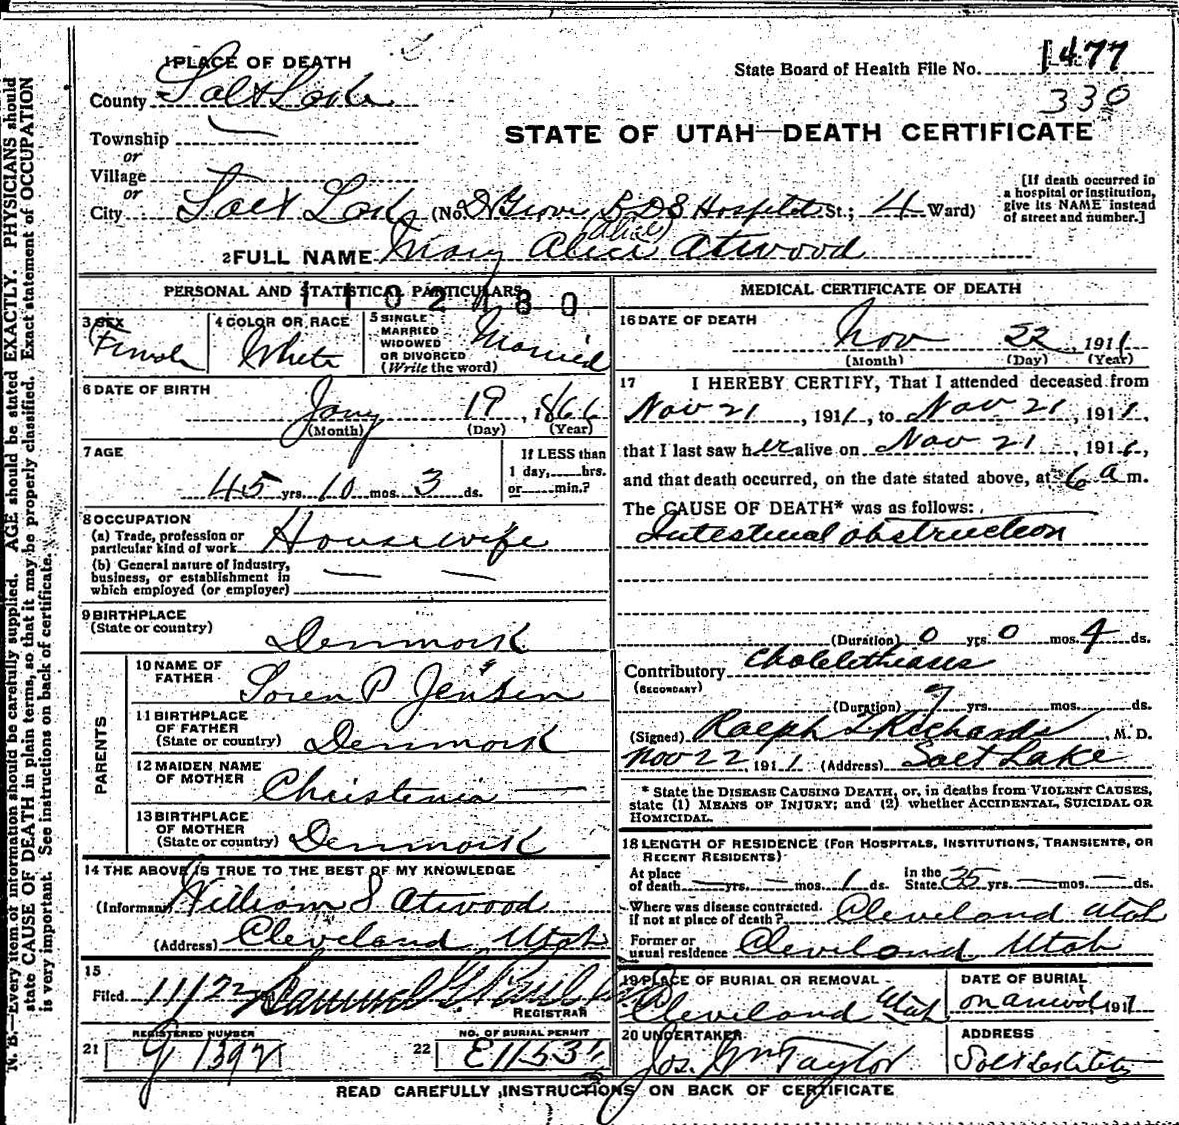 1 PLACE OF DEATH
County Salt Lake
Township —
or
Village
or
City Salt Lake (No. Groves L D S Hospital St.; 4 Ward)
State Board of Health File No. 1477
330
STATE OF UTAH—DEATH CERTIFICATE
[If death occurred in a hospital or institution, give its NAME instead of street and number.]
(Alice)
2 FULL NAME Mary Alice Atwood
PERSONAL AND STATISTICAL PARTICULARS
1102480
3 SEX Female
4 COLOR OR RACE White
5 SINGLE MARRIED WIDOWED OR DIVORCED (Write the word) Married
6 DATE OF BIRTH Jany 19, 1866
(Month) (Day) (Year)
7 AGE
45 yrs. 10 mos. 3 ds.
If LESS than 1 day, hrs. or min.?
8 OCCUPATION
(a) Trade, profession or particular kind of work Housewife
(b) General nature of industry, business, or establishment in which employed (or employer) — —
9 BIRTHPLACE
(State or country) Denmark
PARENTS
10 NAME OF FATHER Soren P Jensen
11 BIRTHPLACE OF FATHER (State or country) Denmark
12 MAIDEN NAME OF MOTHER Christenia —
13 BIRTHPLACE OF MOTHER (State or country) Denmark
14 THE ABOVE IS TRUE TO THE BEST OF MY KNOWLEDGE
(Informant) William S Atwood
(Address) Cleveland, Utah
15
Filed 11/22 Samuel G Paul
REGISTRAR
REGISTERED NUMBER
21 g 1392
NO. OF BURIAL PERMIT
22 E1153
MEDICAL CERTIFICATE OF DEATH
16 DATE OF DEATH
Nov 22, 1911
(Month) (Day) (Year)
17 I HEREBY CERTIFY, That I attended deceased from
Nov 21, 1911, to Nov 21, 1911,
that I last saw her alive on Nov 21, 1911,
and that death occurred, on the date stated above, at 6 a m.
The CAUSE OF DEATH* was as follows:
Intestinal obstruction
(Duration) 0 yrs. 0 mos. 4 ds.
Contributory Cholelithiasis
(SECONDARY)
(Duration) 9 yrs. mos. ds.
(Signed) Ralph T Richards, M. D.
Nov 22, 1911 (Address) Salt Lake
* State the DISEASE CAUSING DEATH, or, in deaths from VIOLENT CAUSES, state (1) MEANS OF INJURY; and (2) whether ACCIDENTAL, SUICIDAL OR HOMICIDAL.
18 LENGTH OF RESIDENCE (FOR HOSPITALS, INSTITUTIONS, TRANSIENTS, OR RECENT RESIDENTS)
At place of death — yrs. — mos. 1 ds. In the State 35 yrs. — mos. — ds.
Where was disease contracted, if not at place of death? Cleveland Utah
Former or usual residence Cleveland Utah
19 PLACE OF BURIAL OR REMOVAL
Cleveland Utah
DATE OF BURIAL
on arrival 1911
20 UNDERTAKER
Jos. Wm Taylor
ADDRESS
Salt Lake
READ CAREFULLY INSTRUCTIONS ON BACK OF CERTIFICATE
N. B.—Every item of information should be carefully supplied. AGE should be stated EXACTLY. PHYSICIANS should
state CAUSE OF DEATH in plain terms, so that it may be properly classified. Exact statement of OCCUPATION
is very important. See instructions on back of certificate.